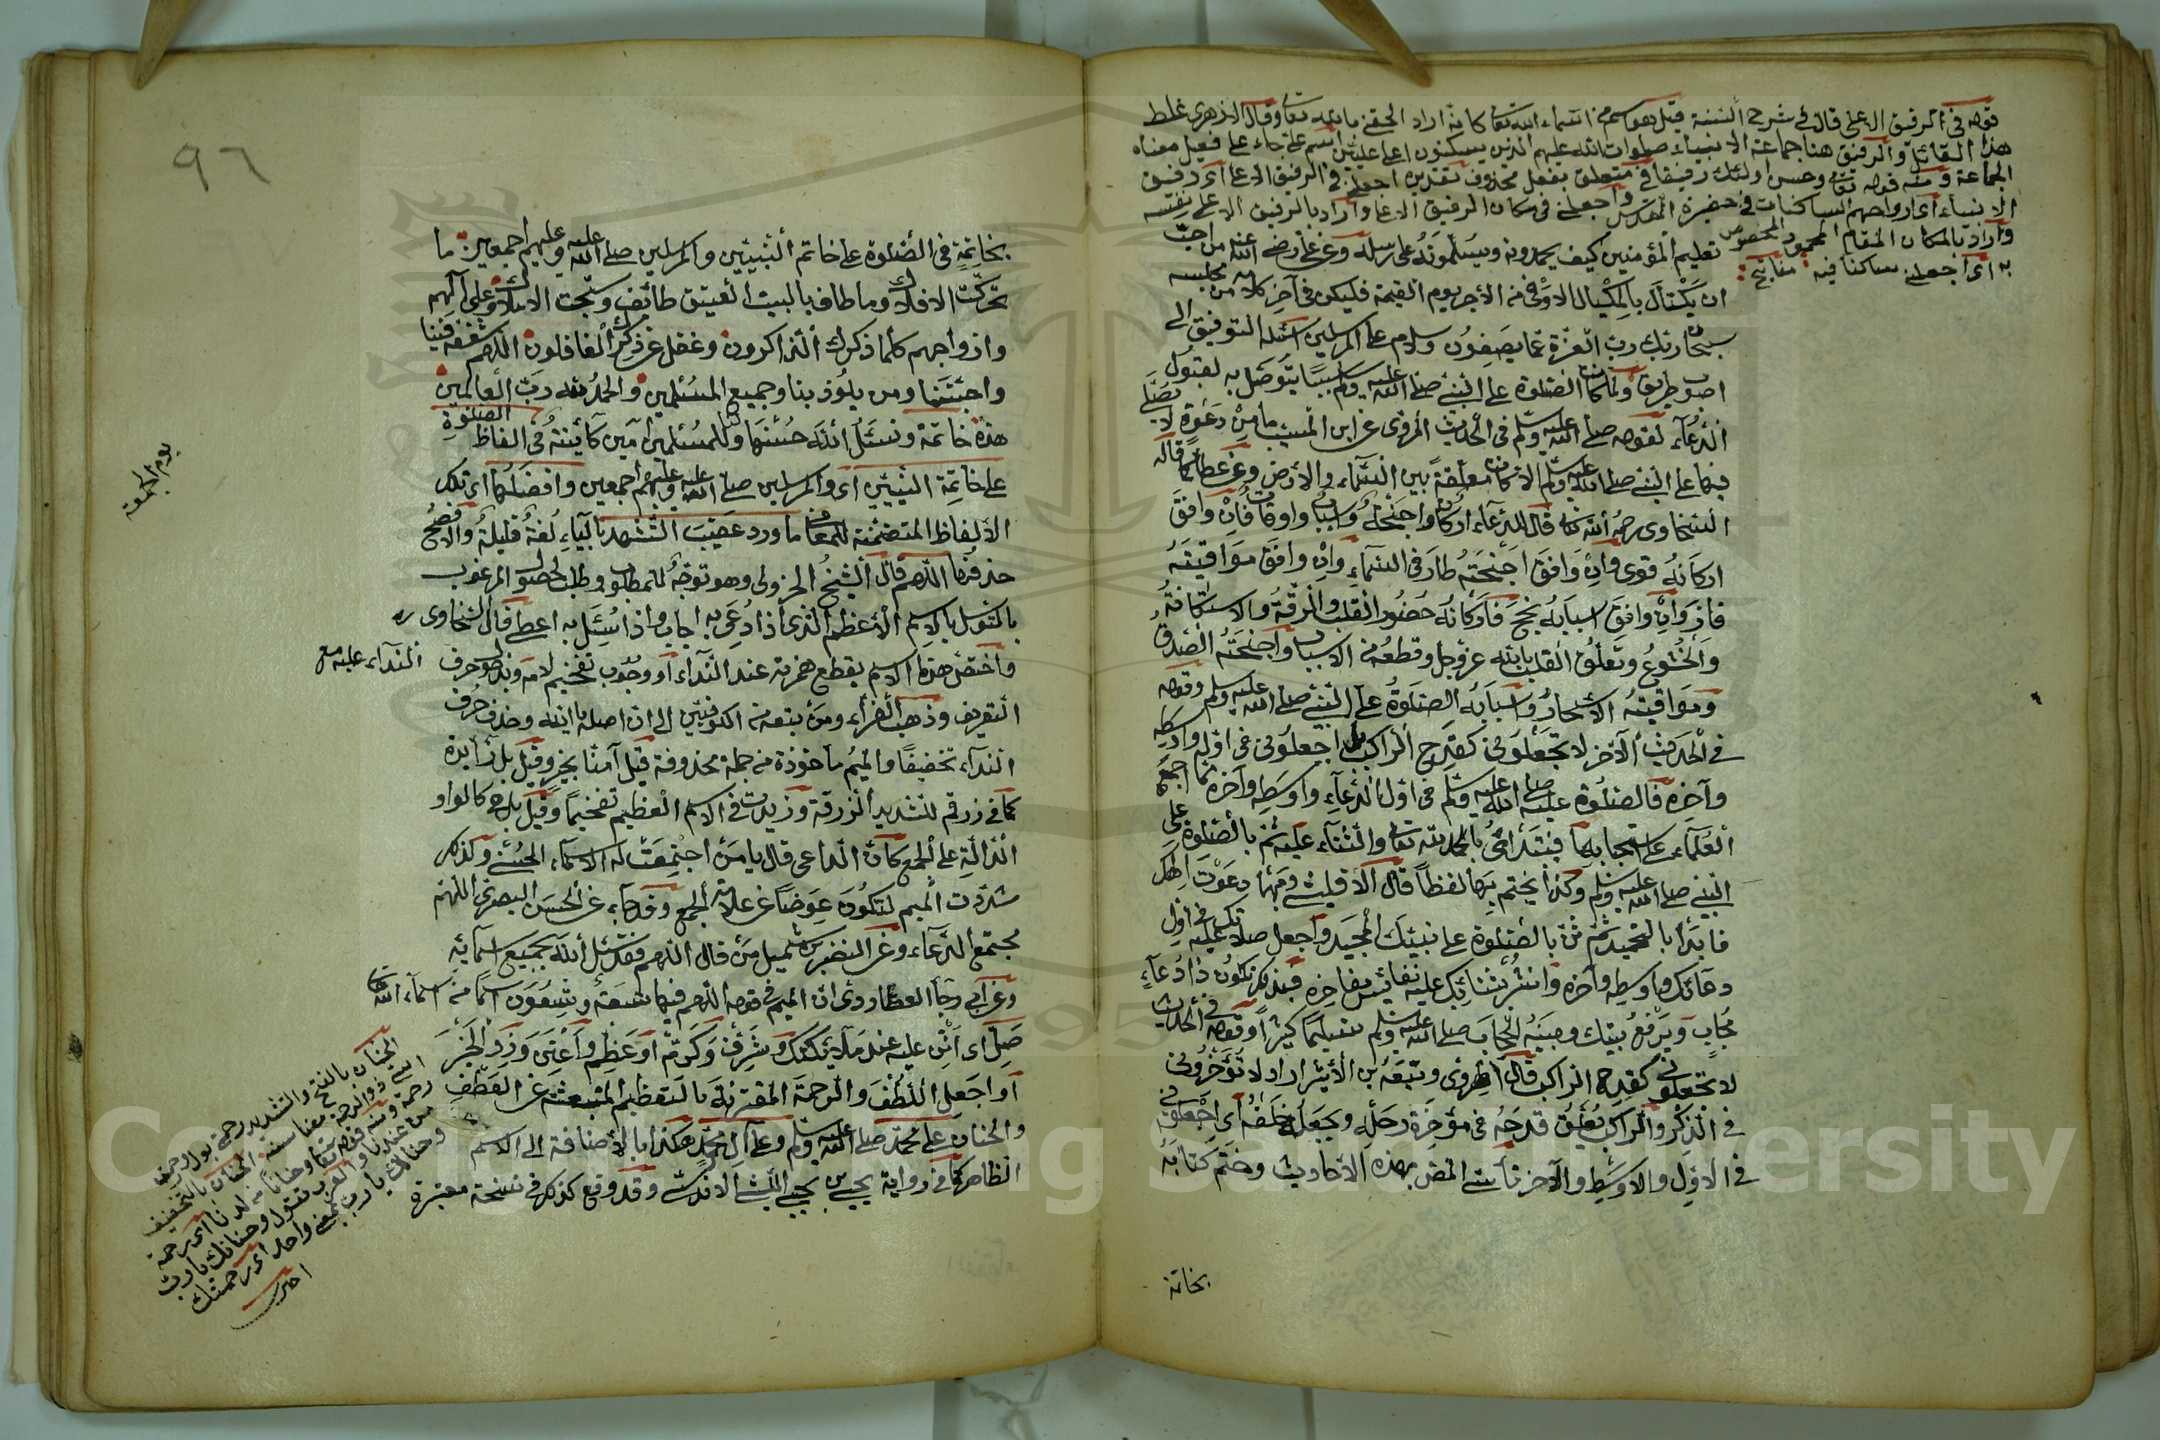 قوله في الرفيق الاعلى قال في شرح السنة قيل هو اسم من اسماء الله تعالى كانه اراد الحقني بالله تعالى وقال الازهري غلط
هذا القائل والرفيق هنا جماعة الانبياء صلوات الله عليهم الذين يسكنون اعلى عليين اسم جاء على فعيل معناه
الجماعة ومنه قوله تعالى وحسن اولئك رفيقا في متعلق بفعل محذوف تقديره اجعلني في الرفيق الاعلى اي رفيق
الانبياء اي ارواحهم الساكنات في حضرة القدس واجعلني في مكان الرفيق الاعلى واراد بالرفيق الاعلى نفسه
واراد بالمكان المقام المحمود المخصوص
به اي اجعلني ساكنا فيه مفاتيح
تعليم المؤمنين كيف يحمدونه ويسلمون على رسله وعن علي رضي الله عنه من احب
ان يكتال بالمكيال الاوفى من الأجر يوم القيمة فليكن في آخر كلامه من مجلسه
سبحان ربك رب العزة عما يصفون وسلام على المرسلين اسئله التوفيق الى
اصوب طريق ولما كان الصلوة على النبي صلى الله عليه وسلم سببا يتوصل به لقبول
الدعاء لقوله صلى الله عليه وسلم في الحديث المروي عن ابن المسيب ما من دعوة لا يصلى
فيها على النبي صلى الله عليه وسلم الا كان معلقة بين السماء والارض وعن عطا كما قاله
السخاوي رحمه الله تعالى قال للدعاء اركان واجنحة واسباب واوقات فان وافق
اركانه قوى وان وافق اجنحته طار في السماء وان وافق مواقيته
فاز وان وافق اسبابه نجح فاركانه حضور القلب والرقة والاستكانة
والخشوع وتعلق القلب بالله عز وجل وقطعه من الاسباب واجنحته الصدق
ومواقيته الاسحار واسبابه الصلوة على النبي صلى الله عليه وسلم وقوله
في الحديث الآخر لا تجعلوني كقدح الراكب بل اجعلوني في اوله واوسطه
وآخره فالصلوة عليه صلى الله عليه وسلم في اول الدعاء واوسطه وآخره مما اجمع
العلماء على استحبابها فيبتدأ اي بالحمد لله تعالى والثناء عليه ثم بالصلوة على
النبي صلى الله عليه وسلم وكذا يختم بها لفظا قال الاقليشي ومهما دعوت الهك
فابدأ بالتحميد ثم ثن بالصلوة على نبيك المجيد واجعل صلاتك عليه في اول
دعائك واوسطه وآخره وانشر بثنائك عليه نفائس مفاخره فبذلك تكون ذا دعاء
مجاب ويرفع بينك وبينه الحجاب صلى الله عليه وسلم تسليما كثيرا وقوله في الحديث
لا تجعلوني كقدح الراكب قال الهروي وتبعه ابن الأثير اراد لا تؤخروني
في الذكر والراكب يعلق قدحه في مؤخرة رحله ويجعله خلفه اي اجعلوني في
في الاول والاوسط والآخر تأسى المص بهذه الاحاديث وختم كتابه
بخاتمة
٩٦
بخاتمة في الصلوة على خاتم النبيين والمرسلين صلى الله عليه وعليهم اجمعين ما
تحركت الافلاك وما طاف بالبيت العتيق طائف وسبحت الاملاك وعلى آلهم
وازواجهم كلما ذكرك الذاكرون وغفل عن ذكرك الغافلون اللهم شفعه فينا
واجبتنا ومن يلوذ بنا وجميع المسلمين والحمد لله رب العالمين
هذه خاتمة ونسئل الله حسنها لنا وللمسلمين آمين كائنة في الفاظ الصلوة
على خاتمة النبيين اي والمرسلين صلى الله عليه وعليهم اجمعين وافضلها اي تلك
الألفاظ المتضمنة للمعاني ما ورد عقيب التشهد بالياء لغة قليلة والافصح
حذفها اللهم قال الشيخ الجزولي وهو توجه للمطلوب وطلب لحصول المرغوب
بالتوسل بالاسم الأعظم الذي اذا دعي به اجاب واذا سئل به اعطى قال السخاوي ره
واختص هذا الاسم بقطع همزته عند النداء او وجوب تفخيم لامه وبدخول حرف النداء عليه مع
التعريف وذهب الفراء ومن تبعه من الكوفيين الى ان اصله يا الله وحذف حرف
النداء تخفيفا والميم مأخوذة من جملة محذوفة قيل آمنا بخير وقيل بل زائدة
كما في زرقم للشديد الزرقة وزيدت في الاسم العظيم تفخيما وقيل بل هي كالواو
الدالة على الجمع كان الداعي قال يا من اجتمعت له الاسماء الحسنى ولذلك
شددت الميم لتكون عوضا عن علامة الجمع وقد جاء عن الحسن البصري اللهم
مجتمع الدعاء وعن النضر بن شميل من قال اللهم فقد سئل الله بجميع اسمائه
وعن ابي رجا العطاردي ان الميم في قوله اللهم فيها تسعة وتسعون اسما من اسماء الله تعالى
صل اي اثن عليه عند ملائكتك وشرف وكرم او عظم واعتى وزد الخير
او اجعل اللطف والرحمة المقترنة بالتعظيم المنبعثة عن العطف
والحنان على محمد صلى الله عليه وسلم وعلى آل محمد هكذا بالأضافة الى الاسم
الظاهر كما في رواية يحيى بن يحيى الليثي الاندلسي وقد وقع كذلك في نسخة معتبرة
يوم الجمعة
الحنان بالفتح والتشديد رحمة بولوجى
اسى ذو الرحمة معناسنه الحنان بالتخفيف
رحمة ومنه قوله تعالى وحنانا من لدنا اي رحمة
من عندنا والعرب تقول وحنانك يا رب
وحنانيك يا رب بمعنى واحد اي رحمتك
اختري